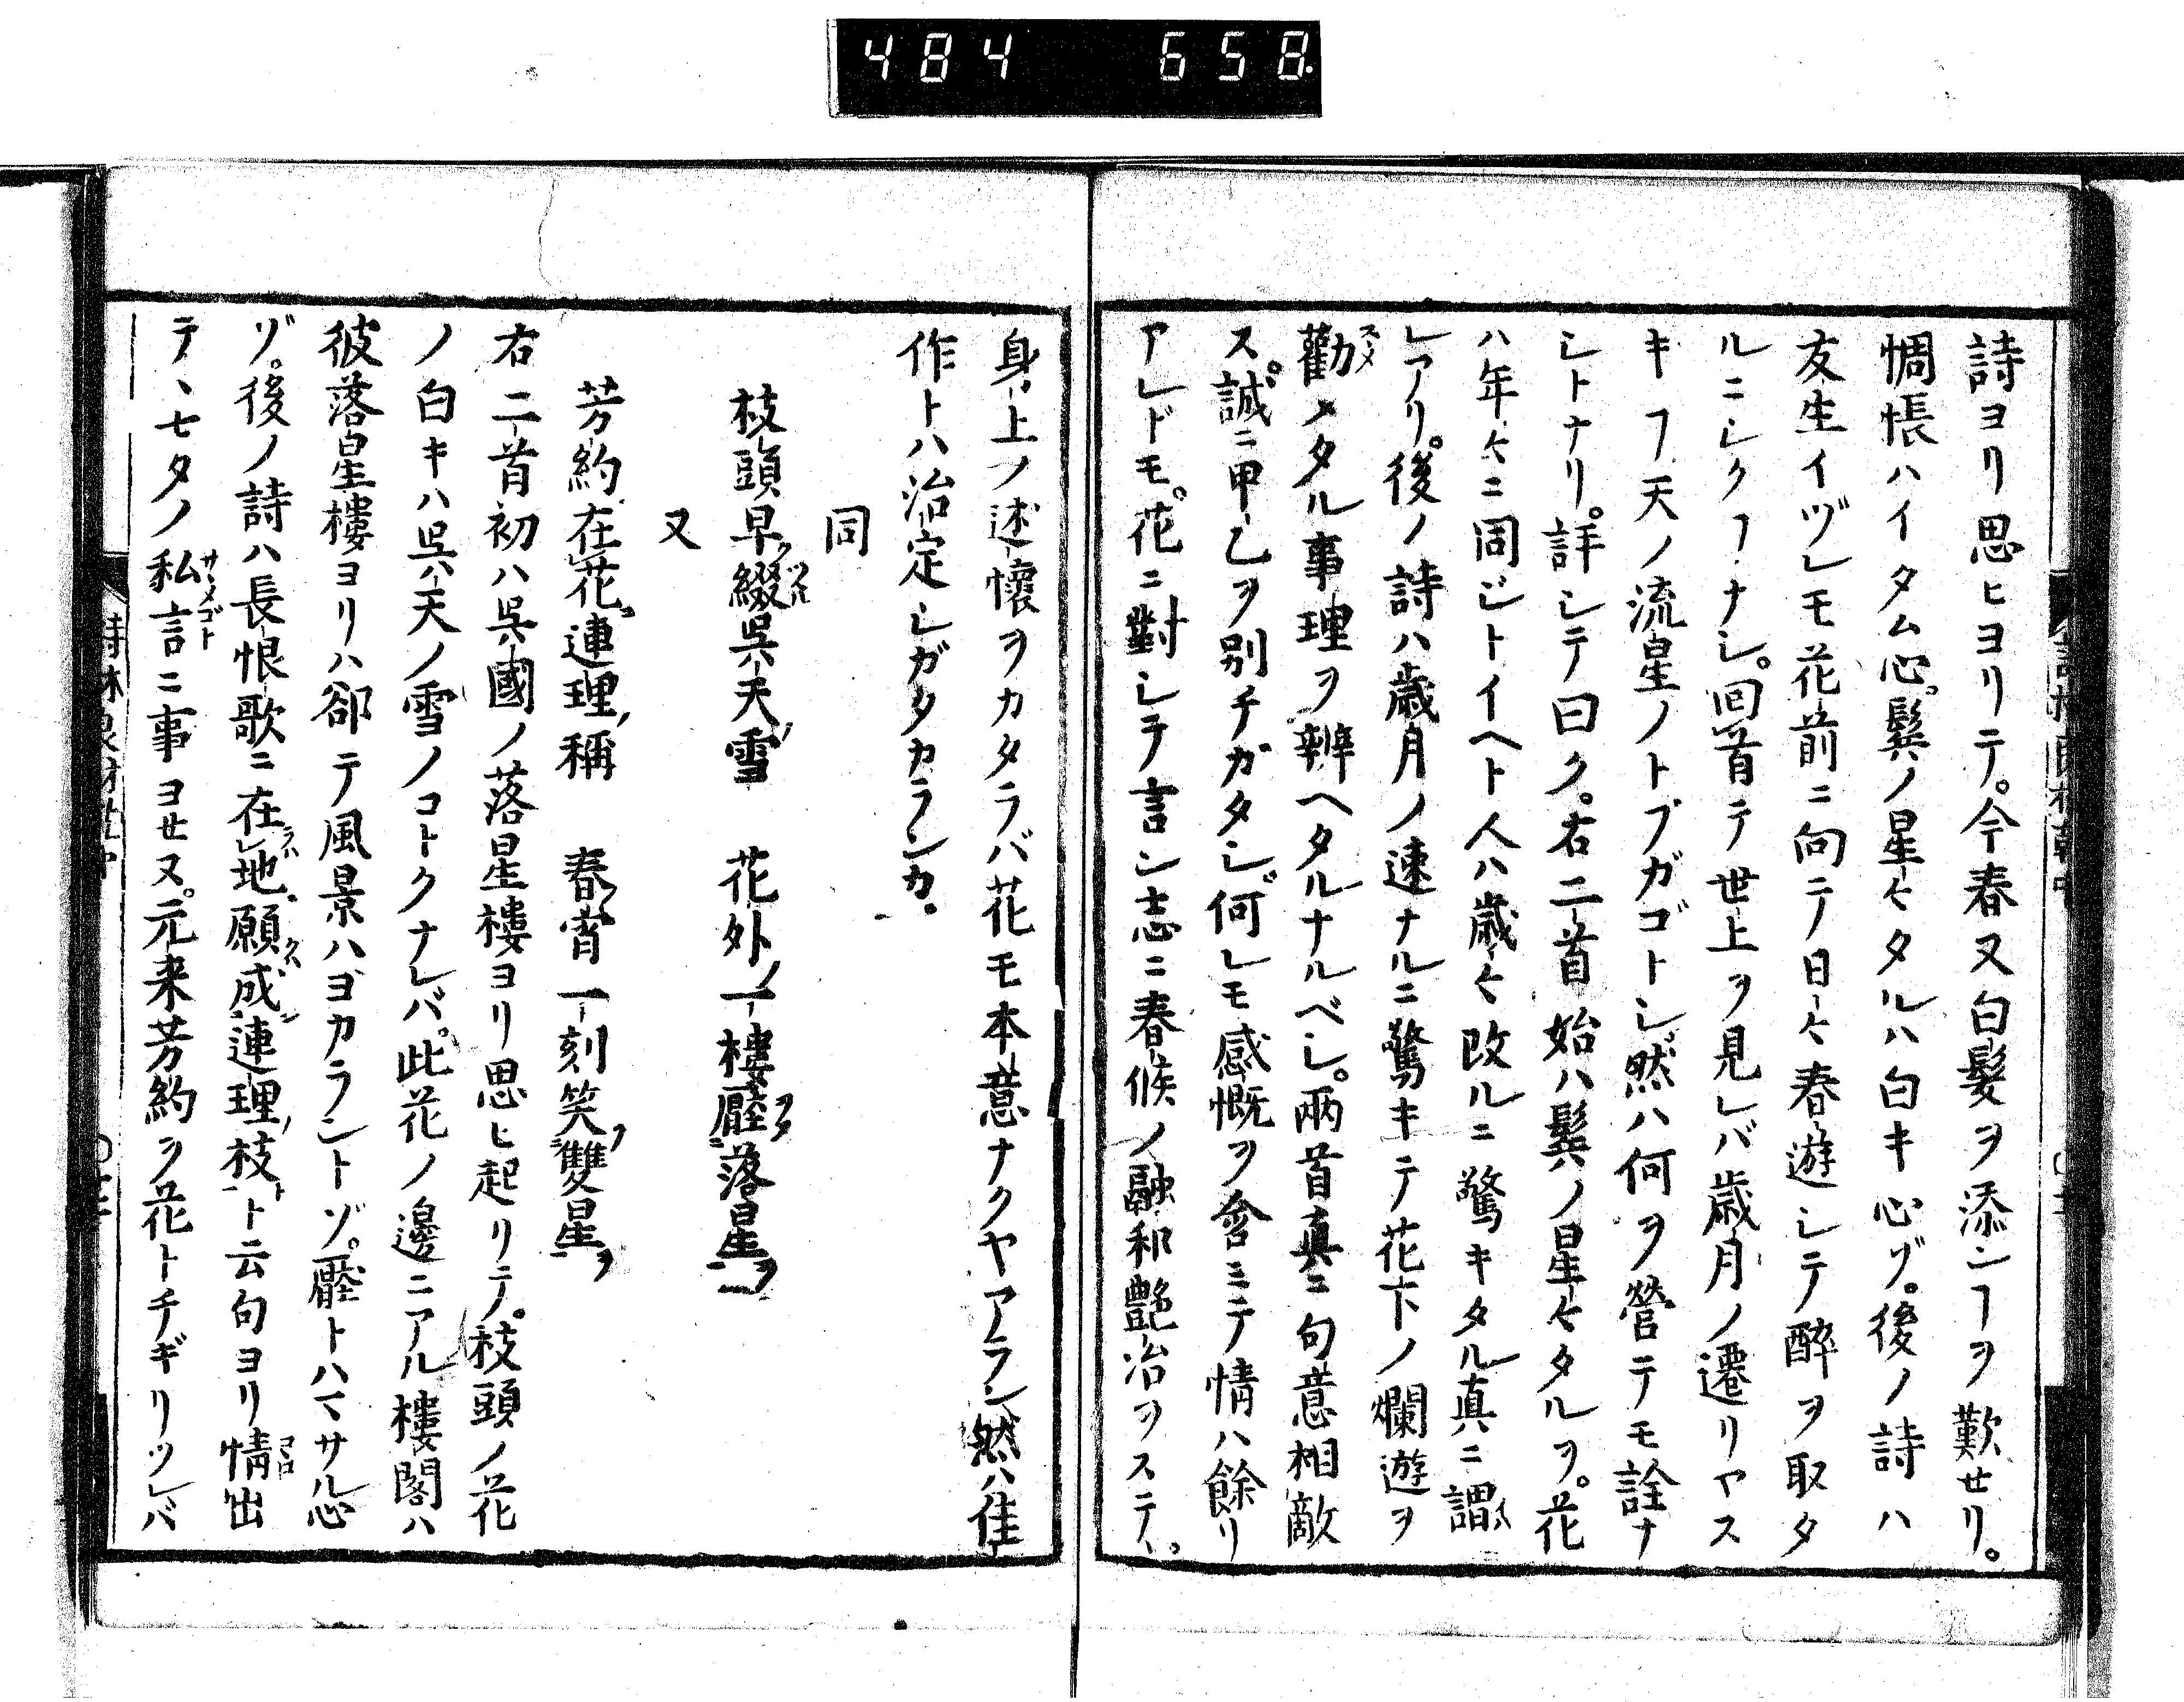 484 658
詩ヨリ思ヒヨリテ。今春又白髮ヲ添ンヿヲ歎セリ。
惆悵ハイタム心。鬂ノ星〻タルハ白キ心ゾ。後ノ詩ハ
友生イヅレモ花前ニ向テ日〻春遊シテ醉ヲ取タ
ルニシクヿナシ。回首テ世上ヲ見レバ歳月ノ遷リヤス
キヿ天ノ流星ノトブガゴトシ。然ハ何ヲ營テモ詮ナ
シトナリ。詳シテ曰ク。右二首始ハ鬂ノ星〻タルヲ。花
ハ年〻ニ同ジトイヘト人ハ歳〻改ルニ驚キタル真ニ謂
レアリ。後ノ詩ハ歳月ノ速ナルニ驚キテ花下ノ爛遊ヲ
勸メタル事理ヲ辨ヘタルナルベシ。兩首真ニ句意相敵
ス。誠ニ甲乙ヲ別チガタシ。何レモ感慨ヲ含ミテ情ハ餘リ
アレドモ。花ニ對シテ言ン志ニ春候ノ融和艶冶ヲステヽ。
身上ノ述懷ヲカタラバ花モ本意ナクヤアラン。然ハ佳
作トハ治定シガタカランカ。
同
枝頭早綴呉天雪 花外ノ一樓壓落星
又
芳約在花連理稱 春宵一刻笑雙星
右二首初ハ呉國ノ落星樓ヨリ思ヒ起リテ。枝頭ノ花
ノ白キハ呉天ノ雪ノコトクナレバ。此花ノ邊ニアル樓閣ハ
彼落星樓ヨリハ卻テ風景ハヨカラントゾ。壓トハマサル心
ゾ。後ノ詩ハ長恨歌ニ在地願成連理枝ト云句ヨリ情出
テヽ七夕ノ私言ニ事ヨセヌ。元来芳約ヲ花トチギリツレバ